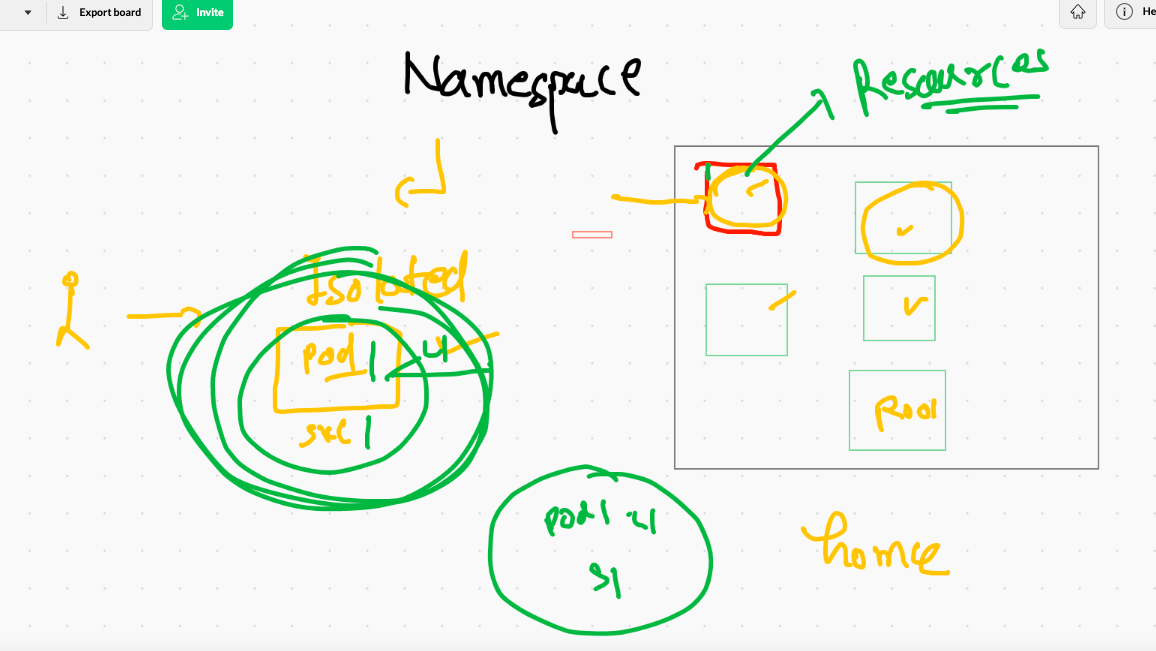 Export board
Invite
He
Namespace
Resources
Isolated
pod 1
svc 1
pod1
S1
home